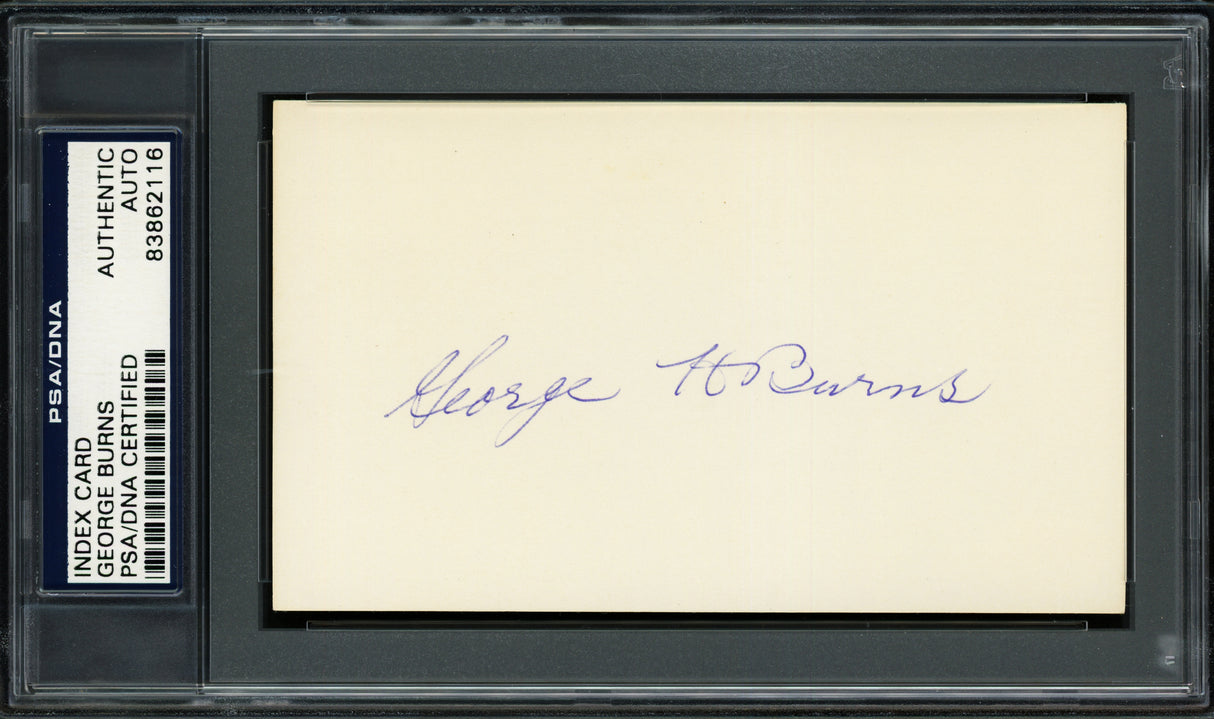 PSA/DNA
INDEX CARD AUTHENTIC
GEORGE BURNS AUTO
PSA/DNA CERTIFIED 83862116
George H Burns